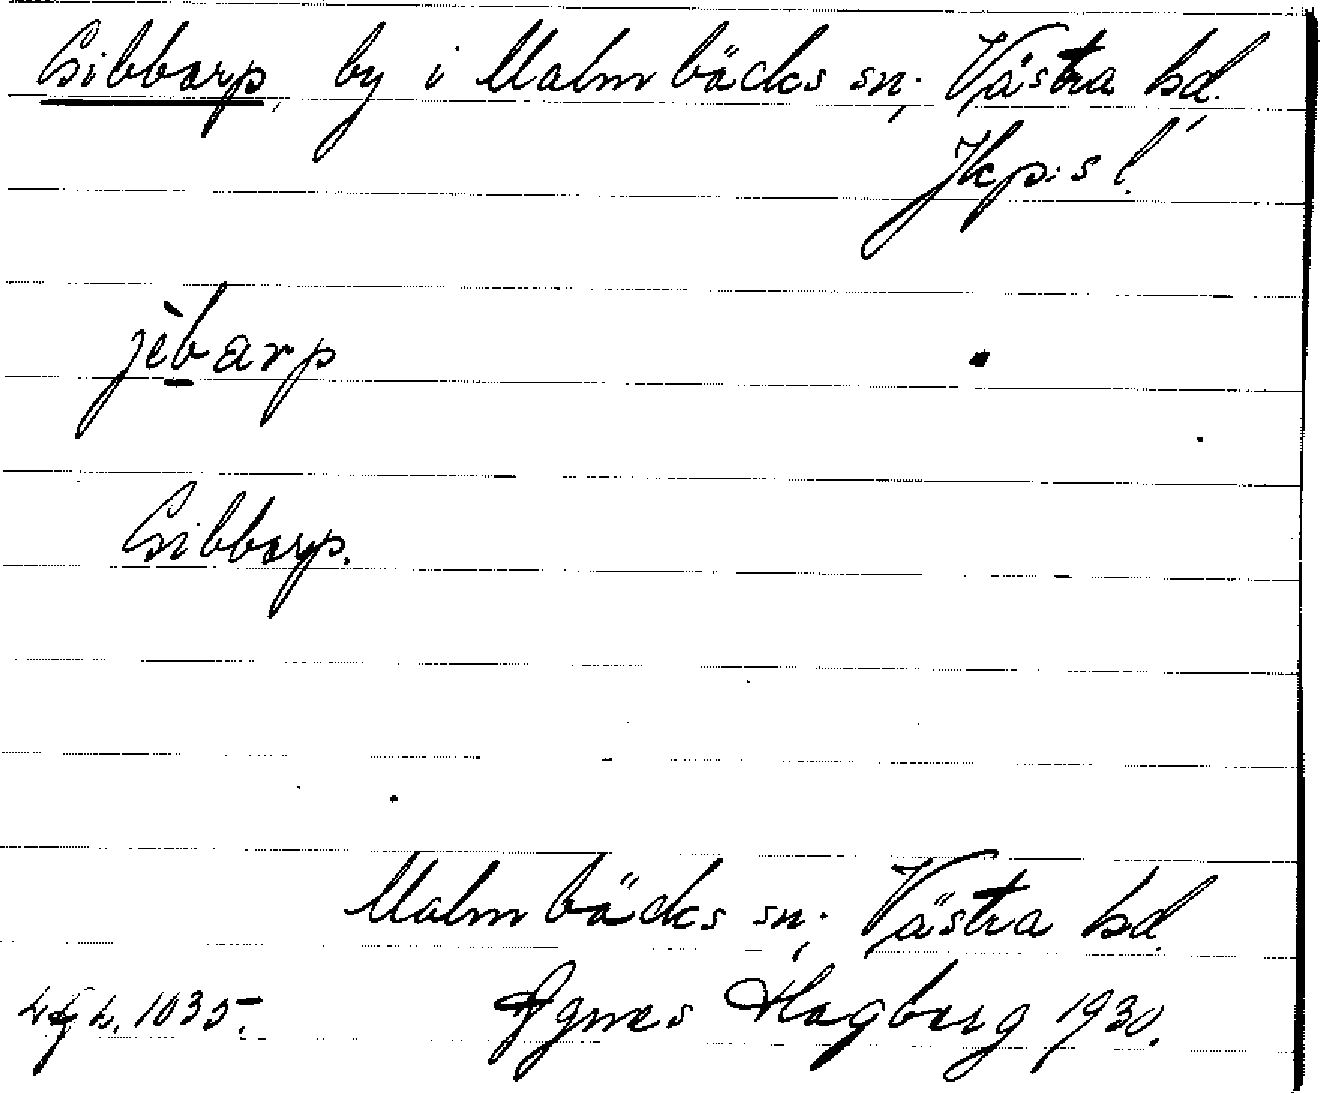 Gibbarp, by i Malmbäcks sn; Västra hd,
Jkp:s l.
jèbarp
Gibbarp.
Malmbäcks sn; Västra hd.
1035. Agnes Hagberg 1930.